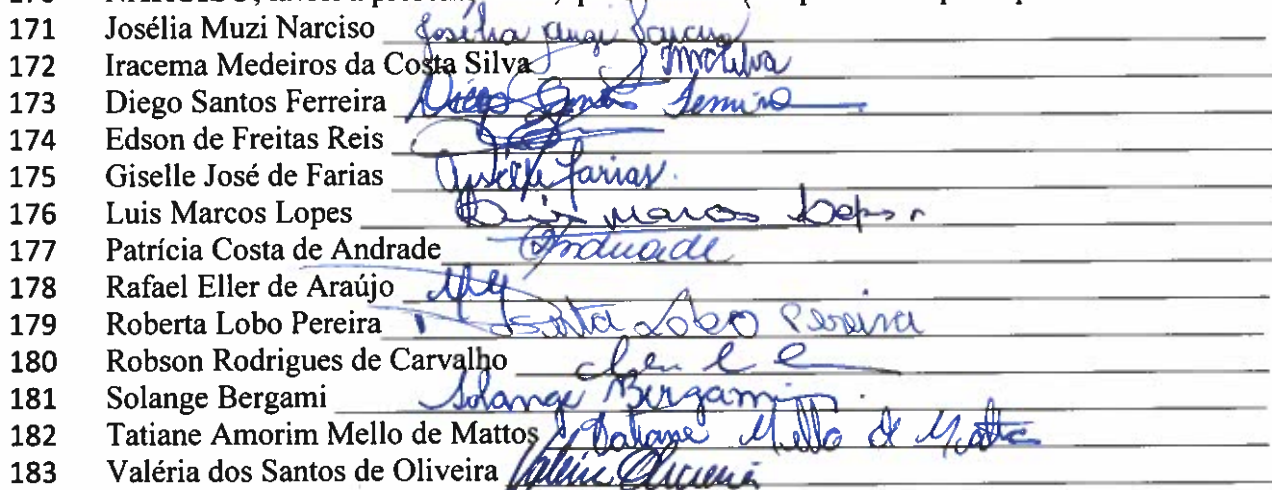 171 Josélia Muzi Narciso Josélia Muzi Narciso
172 Iracema Medeiros da Costa Silva
173 Diego Santos Ferreira Diego Santos Ferreira
174 Edson de Freitas Reis
175 Giselle José de Farias Giselle Farias.
176 Luis Marcos Lopes Luis Marcos Lopes
177 Patrícia Costa de Andrade Andrade
178 Rafael Eller de Araújo
179 Roberta Lobo Pereira Roberta Lobo Pereira
180 Robson Rodrigues de Carvalho
181 Solange Bergami Solange Bergami
182 Tatiane Amorim Mello de Mattos Tatiane Mello de Mattos
183 Valéria dos Santos de Oliveira Valéria Oliveira